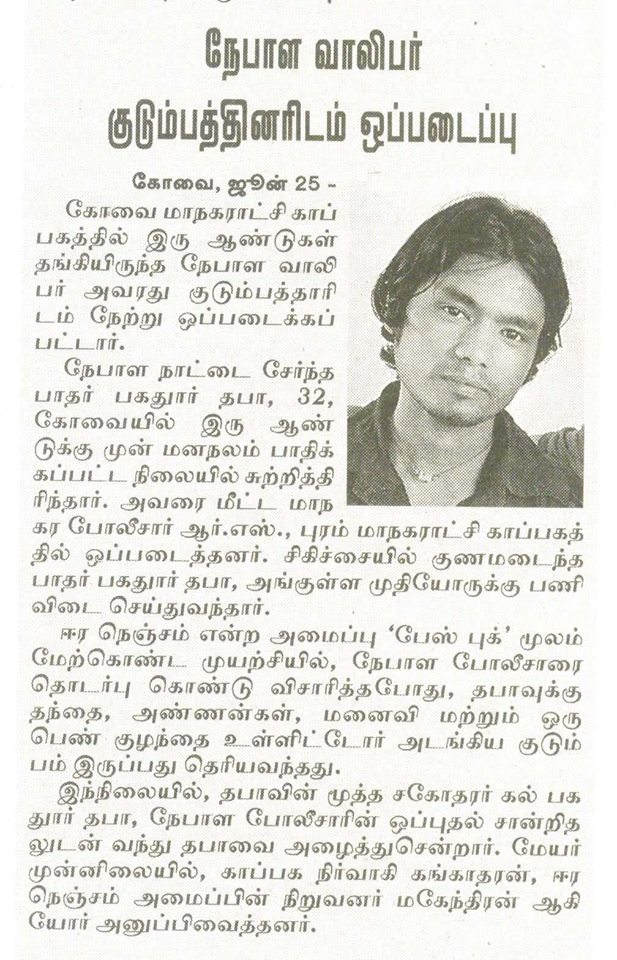 நேபாள வாலிபர்
குடும்பத்தினரிடம் ஒப்படைப்பு
கோவை, ஜூன் 25 -
கோவை மாநகராட்சி காப்
பகத்தில் இரு ஆண்டுகள்
தங்கியிருந்த நேபாள வாலி
பர் அவரது குடும்பத்தாரி
டம் நேற்று ஒப்படைக்கப்
பட்டார்.
நேபாள நாட்டை சேர்ந்த
பாதர் பகதுார் தபா, 32,
கோவையில் இரு ஆண்
டுக்கு முன் மனநலம் பாதிக்
கப்பட்ட நிலையில் சுற்றித்தி
ரிந்தார். அவரை மீட்ட மாந
கர போலீசார் ஆர்.எஸ்., புரம் மாநகராட்சி காப்பகத்
தில் ஒப்படைத்தனர். சிகிச்சையில் குணமடைந்த
பாதர் பகதுார் தபா, அங்குள்ள முதியோருக்கு பணி
விடை செய்துவந்தார்.
ஈர நெஞ்சம் என்ற அமைப்பு ‘பேஸ் புக்’ மூலம்
மேற்கொண்ட முயற்சியில், நேபாள போலீசாரை
தொடர்பு கொண்டு விசாரித்தபோது, தபாவுக்கு
தந்தை, அண்ணன்கள், மனைவி மற்றும் ஒரு
பெண் குழந்தை உள்ளிட்டோர் அடங்கிய குடும்
பம் இருப்பது தெரியவந்தது.
இந்நிலையில், தபாவின் மூத்த சகோதரர் கல் பக
துார் தபா, நேபாள போலீசாரின் ஒப்புதல் சான்றித
லுடன் வந்து தபாவை அழைத்துசென்றார். மேயர்
முன்னிலையில், காப்பக நிர்வாகி கங்காதரன், ஈர
நெஞ்சம் அமைப்பின் நிறுவனர் மகேந்திரன் ஆகி
யோர் அனுப்பிவைத்தனர்.